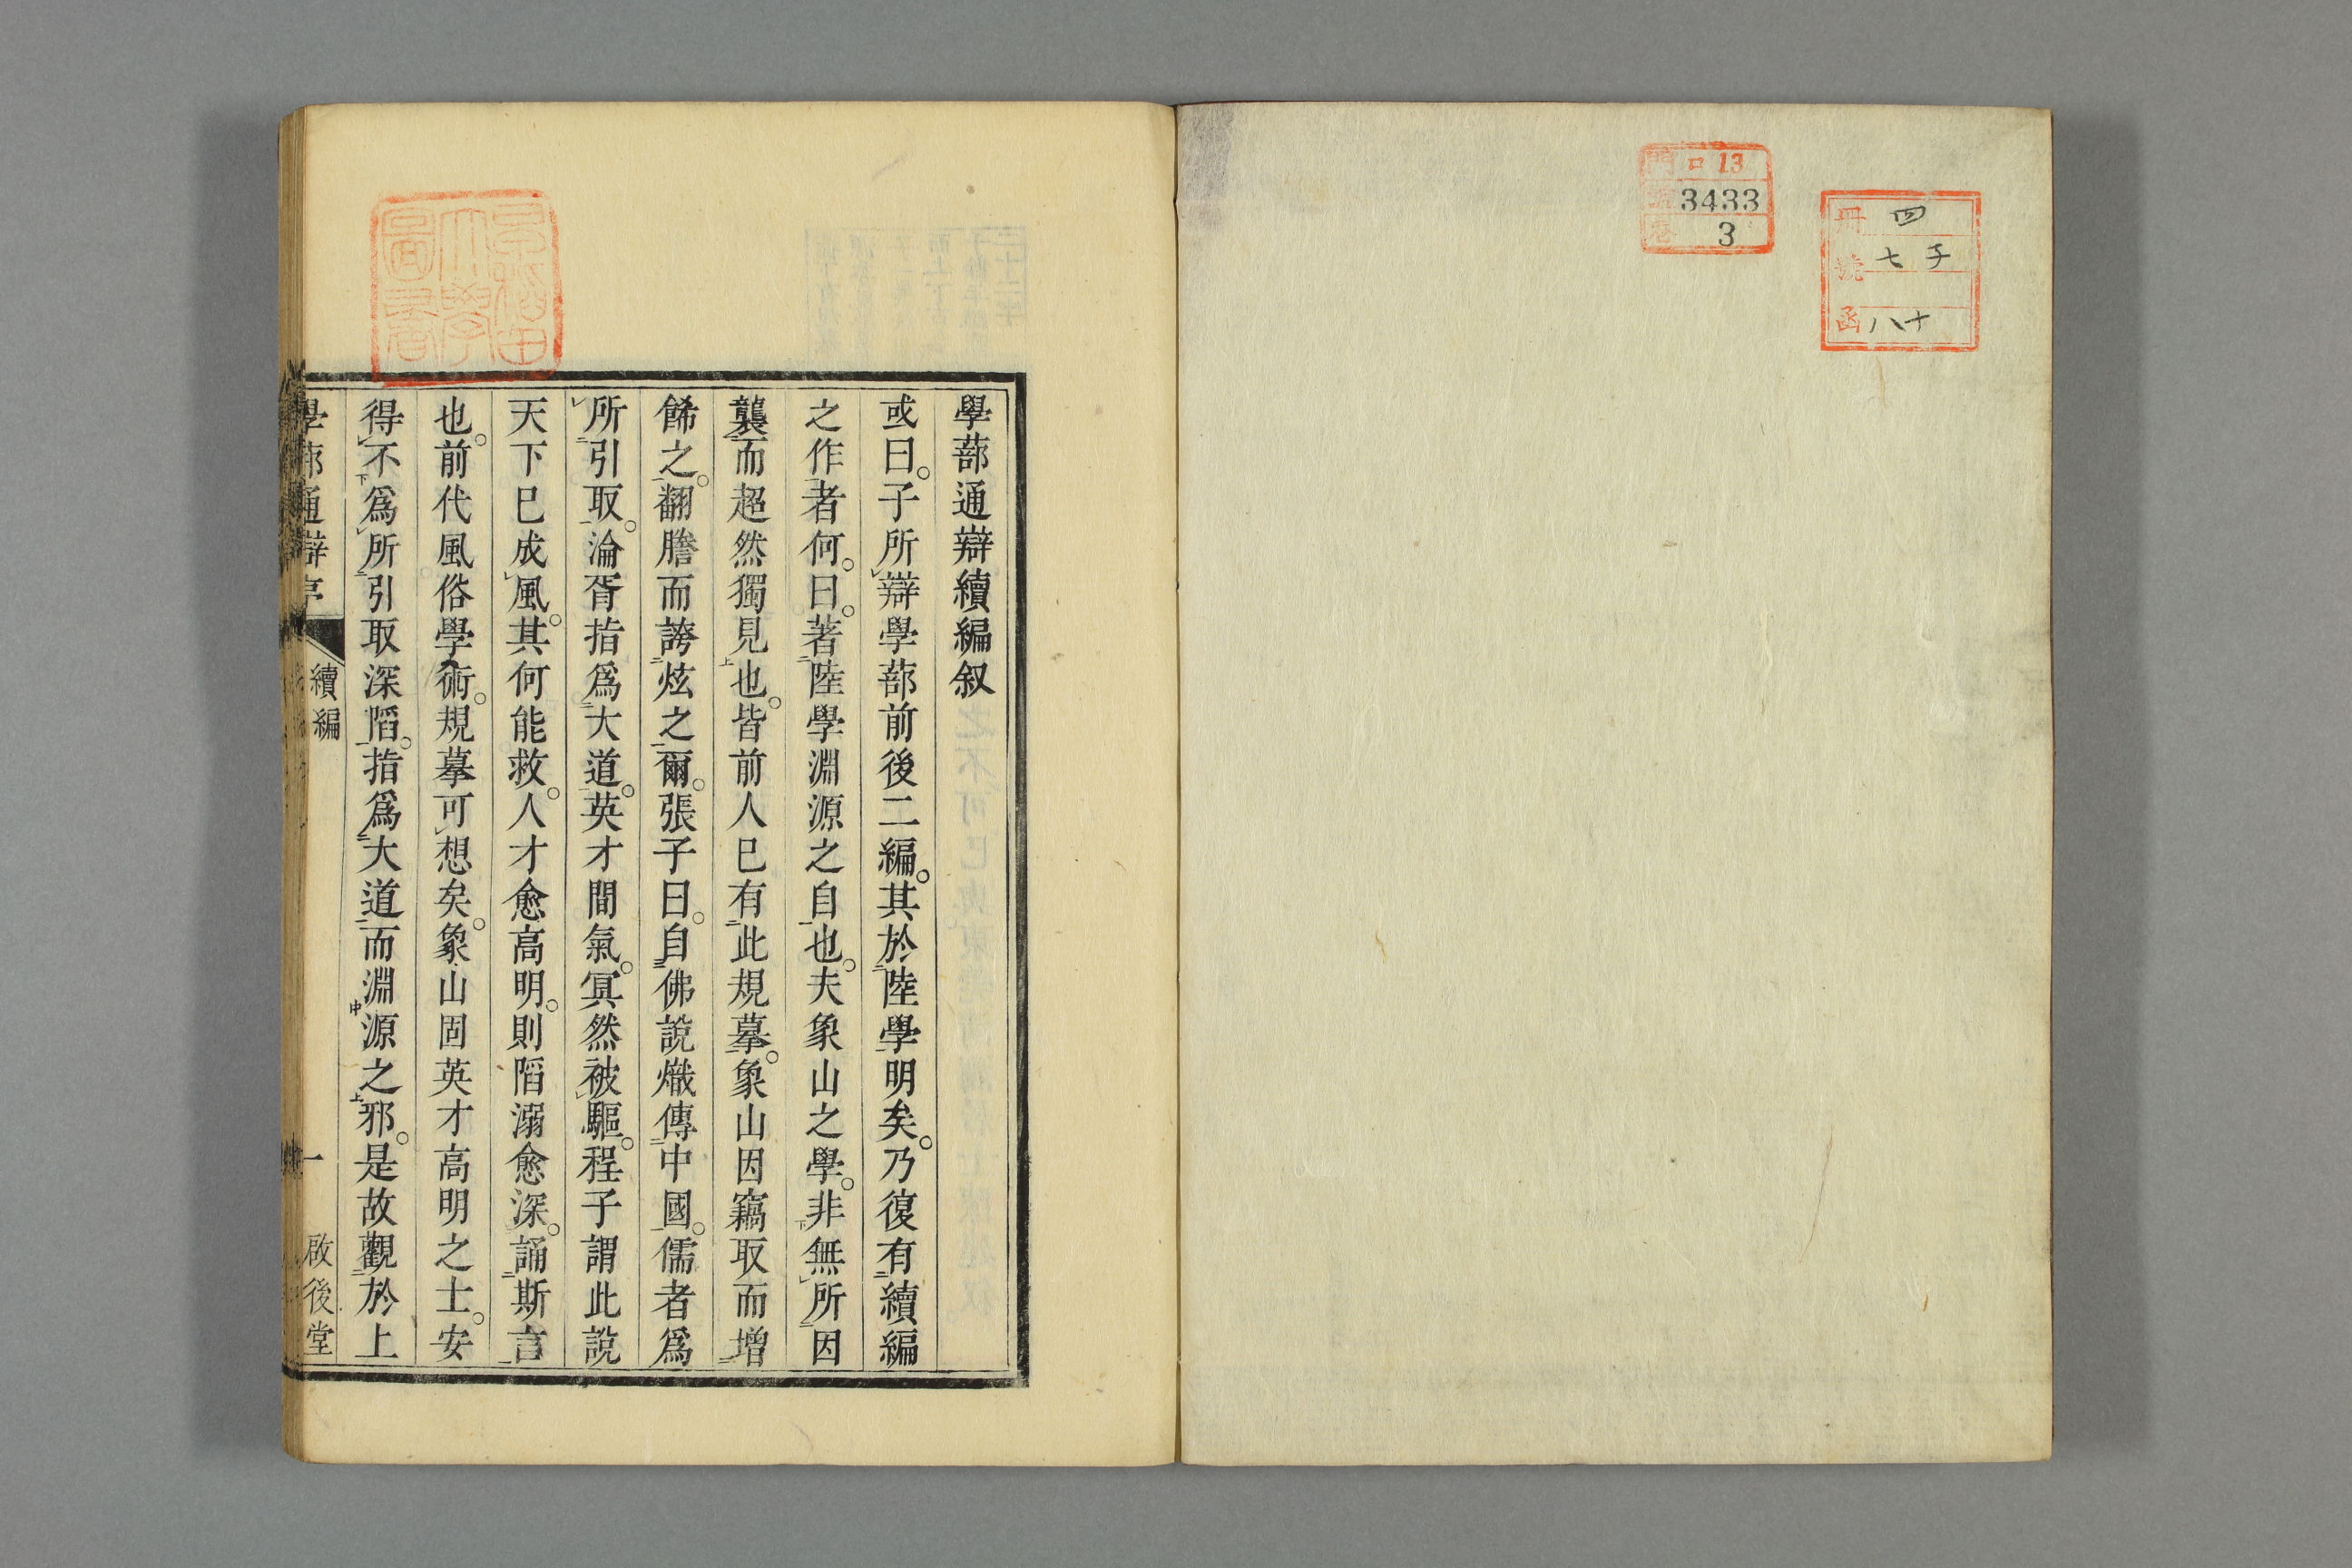 門 口 13
號 3433
卷 3
冊 四
號 七子
函 八十
早稲田大學圖書
學蔀通辯續編叙
或曰。子所辯學蔀前後二編。其於陸學明矣。乃復有續編
之作者何。曰。著陸學淵源之自也。夫象山之學。非無所因
襲而超然獨見也。皆前人已有此規摹。象山因竊取而增
餙之。翻謄而誇炫之爾。張子曰。自佛說熾傳中國。儒者爲
所引取。淪胥指爲大道。英才間氣。冥然被驅。程子謂此說
天下已成風。其何能救。人才愈高明。則陷溺愈深。誦斯言
也。前代風俗學術。規摹可想矣。象山固英才高明之士。安
得不爲所引取深陷。指爲大道而淵源之邪。是故觀於上
學蔀通辯序 續編 一 啟後堂